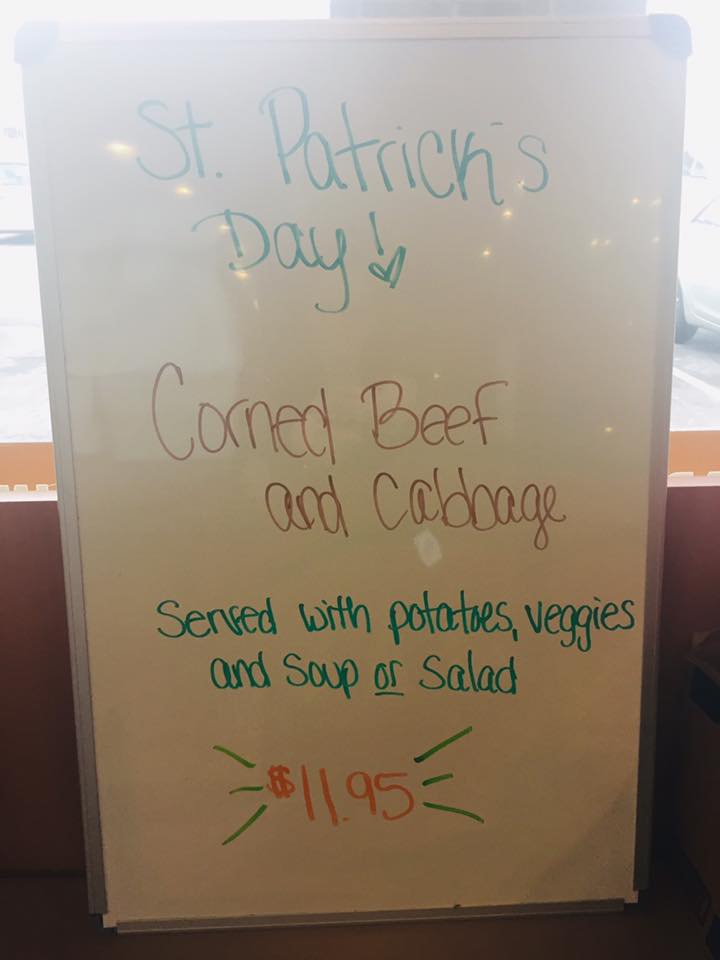 St. Patrick's
Day!
Corned Beef
and Cabbage
Served with potatoes, veggies
and Soup or Salad
$11.95